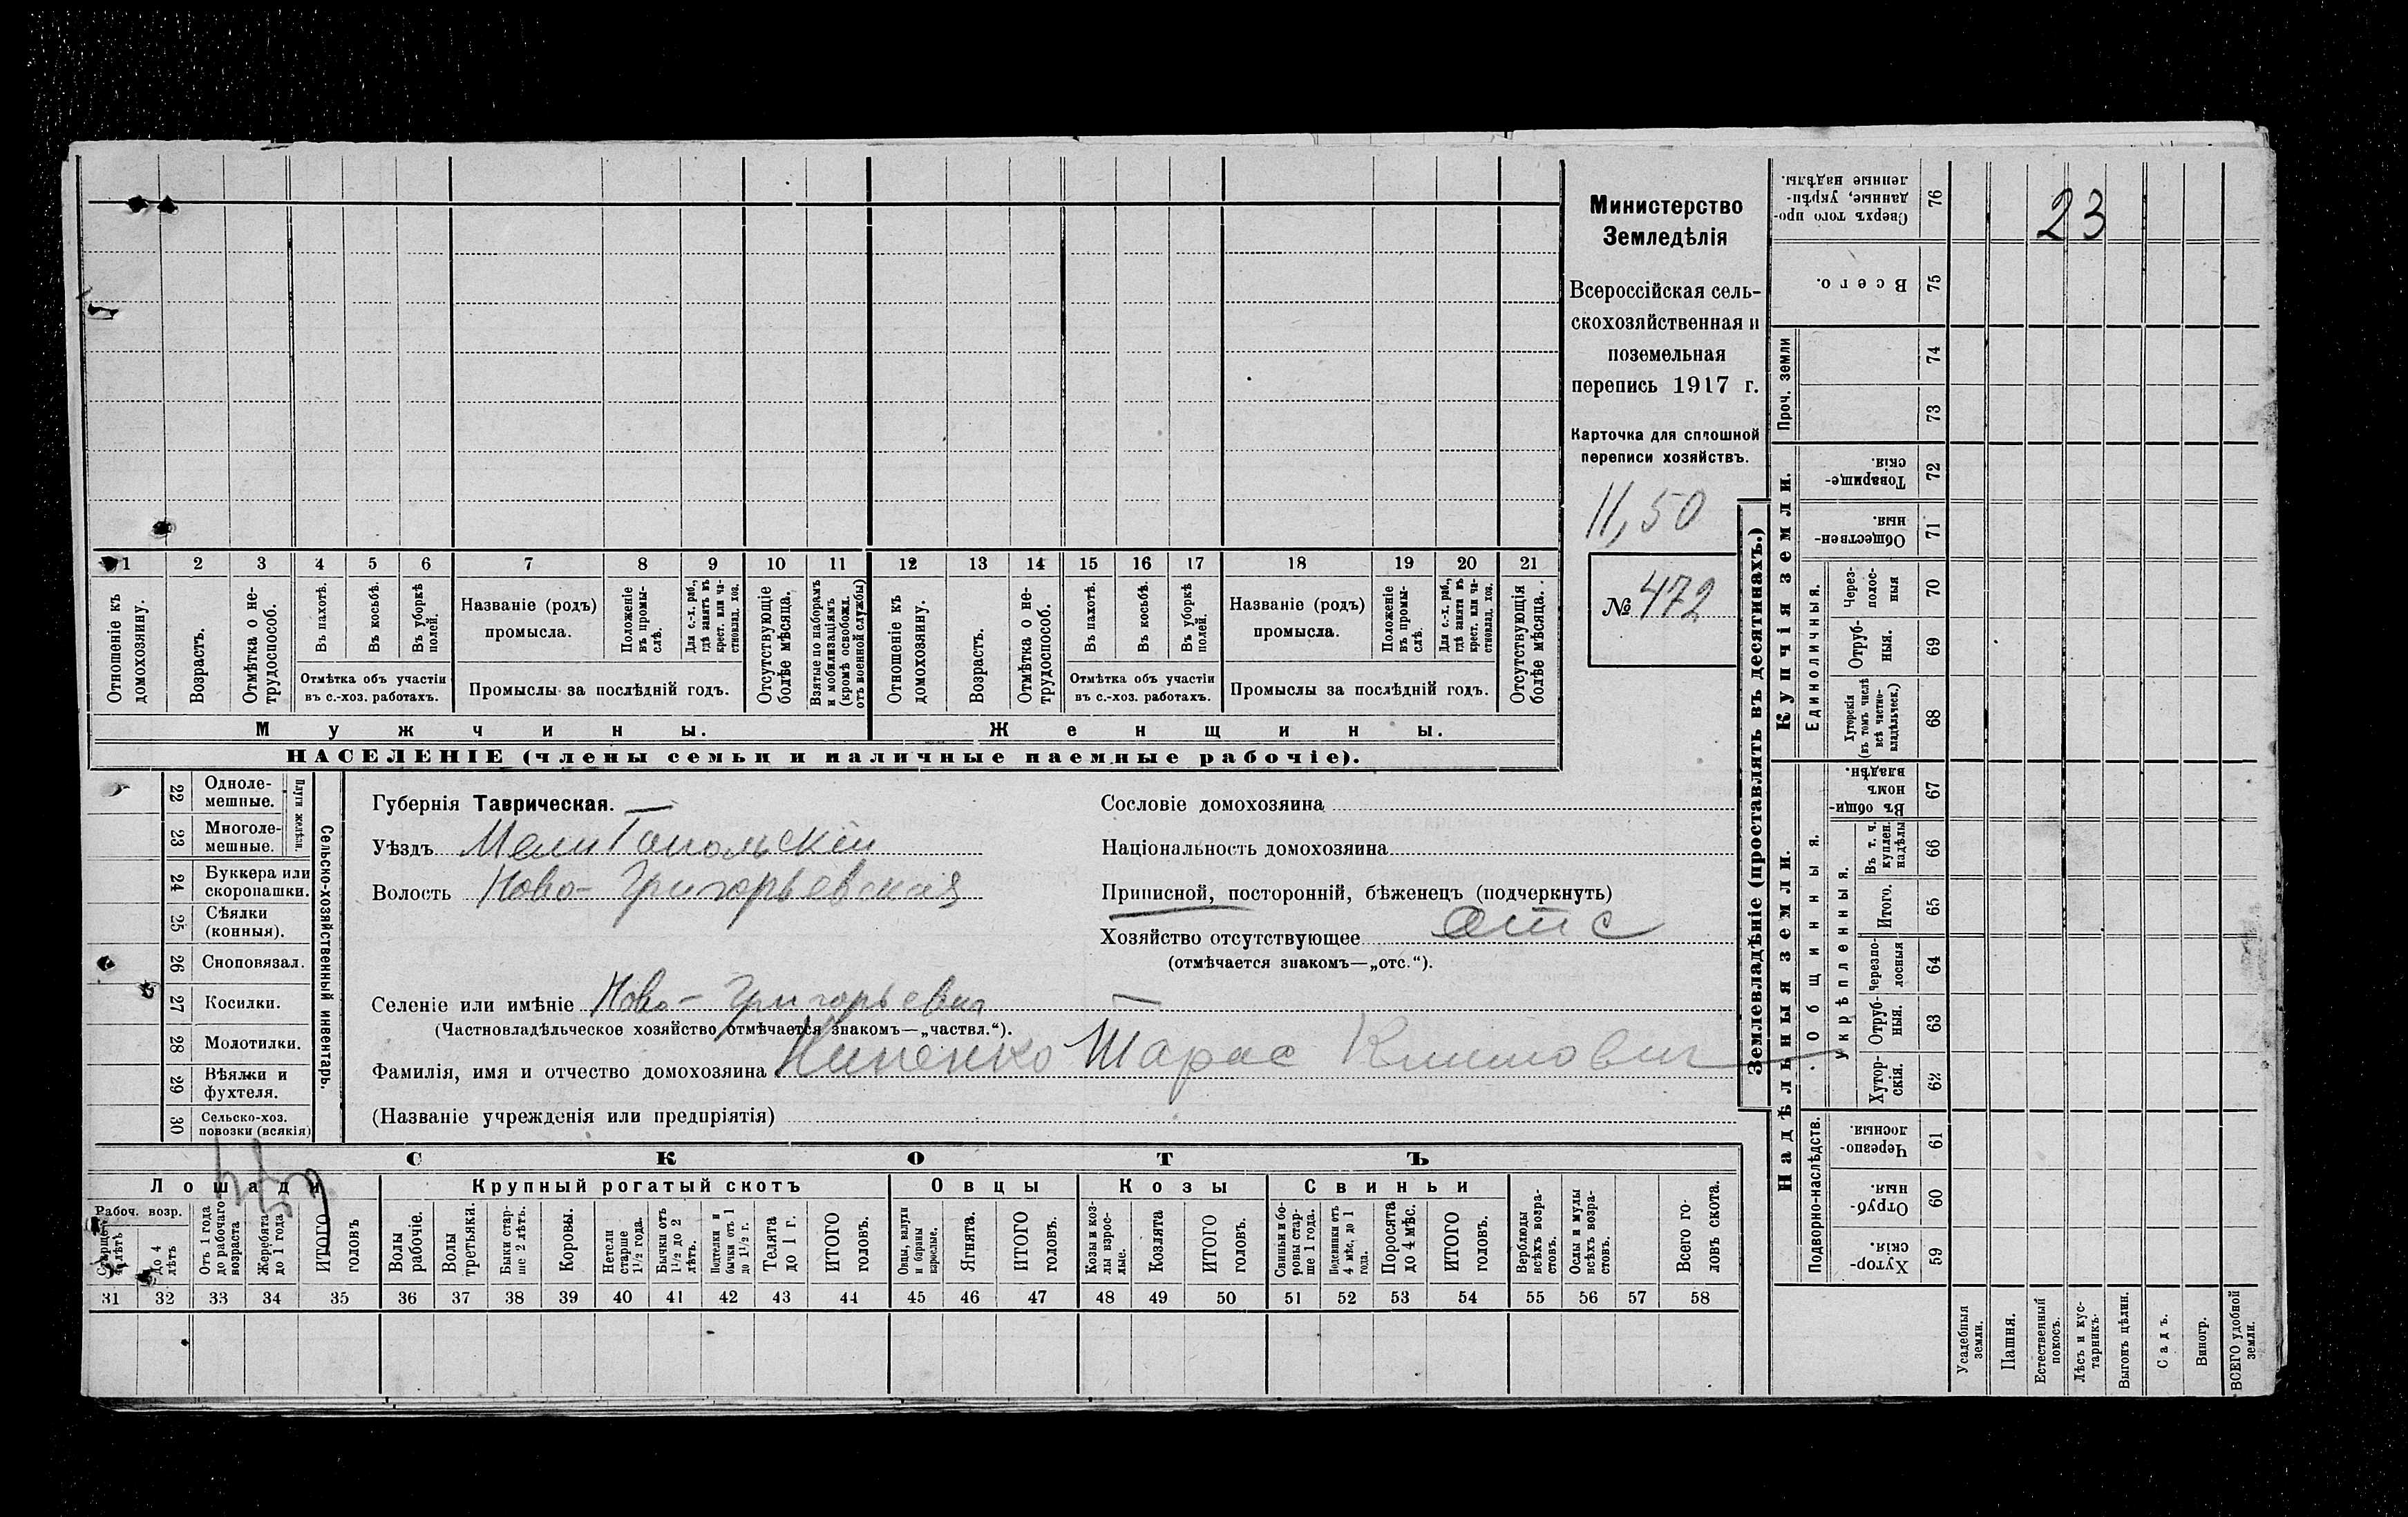 Министерство
Земледѣлія
Всероссійская сель-
скохозяйственная и
поземельная
перепись 1917 г.
Карточка для сплошной
переписи хозяйствъ.
11,50
№ 472
1 2 3 4 5 6 7 8 9 10 11 12 13 14 15 16 17 18 19 20 21
Отношеніе къ домохозяину.
Возрастъ.
Отмѣтка о не-трудоспособ.
Въ пахотѣ.
Въ косьбѣ.
Въ уборкѣ полей.
Отмѣтка объ участіи
въ с.-хоз. работахъ.
Названіе (родъ)
промысла.
Положеніе въ промы-слѣ.
Для с.-х. раб., гдѣ занятъ въ крест. или ча-стновлад. хоз.
Промыслы за послѣдній годъ.
Отсутствующіе болѣе мѣсяца.
Взятые по наборамъ и мобилизаціямъ (кромѣ освобожд. отъ военной службы)
Отношеніе къ домохозяину.
Возрастъ.
Отмѣтка о не-трудоспособ.
Въ пахотѣ.
Въ косьбѣ.
Въ уборкѣ полей.
Отмѣтка объ участіи
въ с.-хоз. работахъ.
Названіе (родъ)
промысла.
Положеніе въ промы-слѣ.
Для с.-х. раб., гдѣ занята въ крест. или ча-стновлад. хоз.
Промыслы за послѣдній годъ.
Отсутствующія болѣе мѣсяца.
Мужчины. Женщины.
НАСЕЛЕНІЕ (члены семьи и наличные наемные рабочіе).
22 Одноле-мешные.
23 Многоле-мешные.
Плуги желѣзн.
24 Буккера или скоропашки.
25 Сѣялки (конныя).
26 Сноповязал.
27 Косилки.
28 Молотилки.
29 Вѣялки и фухтеля.
30 Сельско-хоз. повозки (всякія)
Сельско-хозяйственный инвентарь.
Губернія Таврическая.
Уѣздъ Мелитопольскій
Волость Ново-Григорьевская
Селеніе или имѣніе Ново-Григорьевка
(Частновладѣльческое хозяйство отмѣчается знакомъ—„частвл.“).
Фамилія, имя и отчество домохозяина Тарас Климович
(Названіе учрежденія или предпріятія)
Сословіе домохозяина
Національность домохозяина
Приписной, посторонній, бѣженецъ (подчеркнуть)
Хозяйство отсутствующее отс
(отмѣчается знакомъ—„отс.“).
СКОТЪ
Лошади Крупный рогатый скотъ Овцы Козы Свиньи
Рабоч. возр.
Старше 4 лѣтъ
До 4 лѣтъ
Отъ 1 года до рабочаго возраста
Жеребята до 1 года
ИТОГО головъ
Волы рабочіе.
Волы третьяки.
Быки стар-ше 2 лѣтъ.
Коровы.
Нетели старше 1½ года.
Бычки отъ 1½ до 2 лѣтъ.
Подтелки и бычки отъ 1 до 1½ г.
Телята до 1 г.
ИТОГО головъ.
Овцы, валухи и бараны взрослые.
Ягнята.
ИТОГО головъ.
Козы и коз-лы взрос-лые.
Козлята
ИТОГО головъ.
Свиньи и бо-ровы стар-ше 1 года.
Подсвинки отъ 4 мѣс. до 1 года.
Поросята до 4 мѣс.
ИТОГО головъ.
Верблюды всѣхъ возра-стовъ.
Ослы и мулы всѣхъ возра-стовъ.
Всего го-ловъ скота.
31 32 33 34 35 36 37 38 39 40 41 42 43 44 45 46 47 48 49 50 51 52 53 54 55 56 57 58
Землевладѣніе (проставлять въ десятинахъ.)
Надѣльныя земли. Купчія земли.
Проч. земли
Сверхъ того про-данные, укрѣп-ленные надѣлы. 76
23
Всего. 75
74
73
Товарище-скія. 72
Обществен-ныя. 71
Единоличныя.
Через-полос-ныя 70
Отруб-ныя. 69
Хуторскія (въ томъ числѣ всѣ частно-владѣльческ.) 68
Общинныя.
Въ общи-номъ владѣн. 67
Укрѣпленныя.
Въ т. ч. куплен. надѣлы 66
Итого. 65
Черезпо-лосныя 64
Отруб-ныя. 63
Хутор-скія. 62
Подворно-наслѣдств.
Черезпо-лосныя. 61
Отруб-ныя. 60
Хутор-скія. 59
Усадебныя земли.
Пашня.
Естественный покосъ.
Лѣсъ и кус-тарникъ.
Выгонъ цѣлин.
Садъ.
Виногр.
ВСЕГО удобной земли.